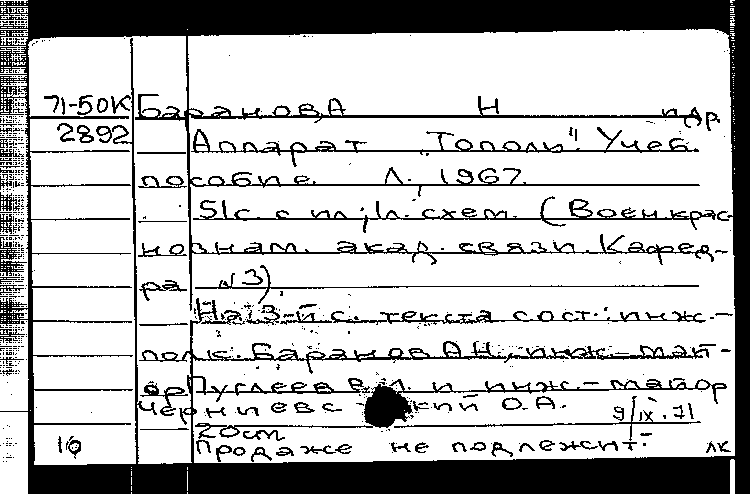 71-50К Баранов, А Н и др.
2892 Аппарат „Тополь". Учеб.
пособие. Л., 1967.
51с. с ил; 1л. схем. (Воен. крас-
нознам. акад. связи. Кафед-
ра №3).
На 3-й с. текста сост.: инж.-
полк. Баранов А.Н., инж.-май-
ор Пуглеев В.И. и инж.-майор
Черниевс кий О.А. 9/IX.71
20cm
16 Продаже не подлежит. ЛК